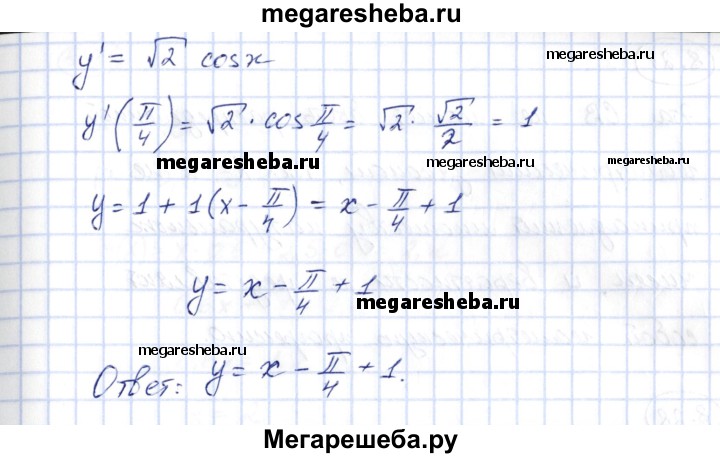 megaresheba.ru
y' = √2 cosx
megaresheba.ru
y'(π/4) = √2 · cos π/4 = √2 · √2/2 = 1
megaresheba.ru megaresheba.ru megaresheba.ru
y = 1 + 1(x - π/4) = x - π/4 + 1
y = x - π/4 + 1
megaresheba.ru
megaresheba.ru
Ответ: y = x - π/4 + 1.
Мегарешеба.ру